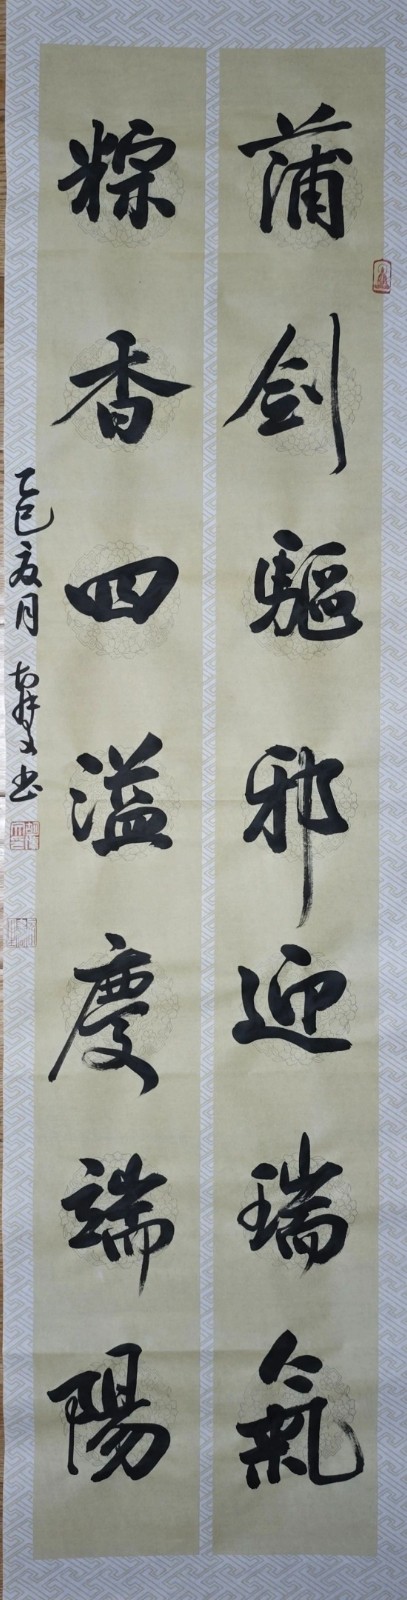 蒲劍驅邪迎瑞氣
粽香四溢慶端陽
乙巳夏月
书